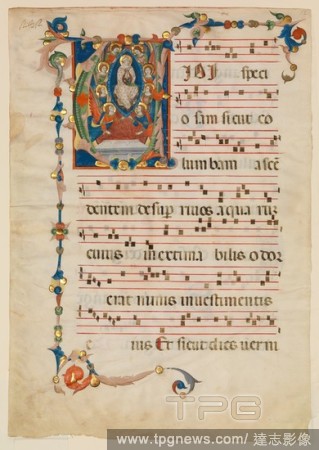 IDI speci
o sam sicut co
lumbam ascē
dentem desup rivos aqua ruz
cuius inextima bilis o dor
erat nimis in vestimentis
e ius Et sicut dies verni
TPG
www.tpgnews.com / 達志影像